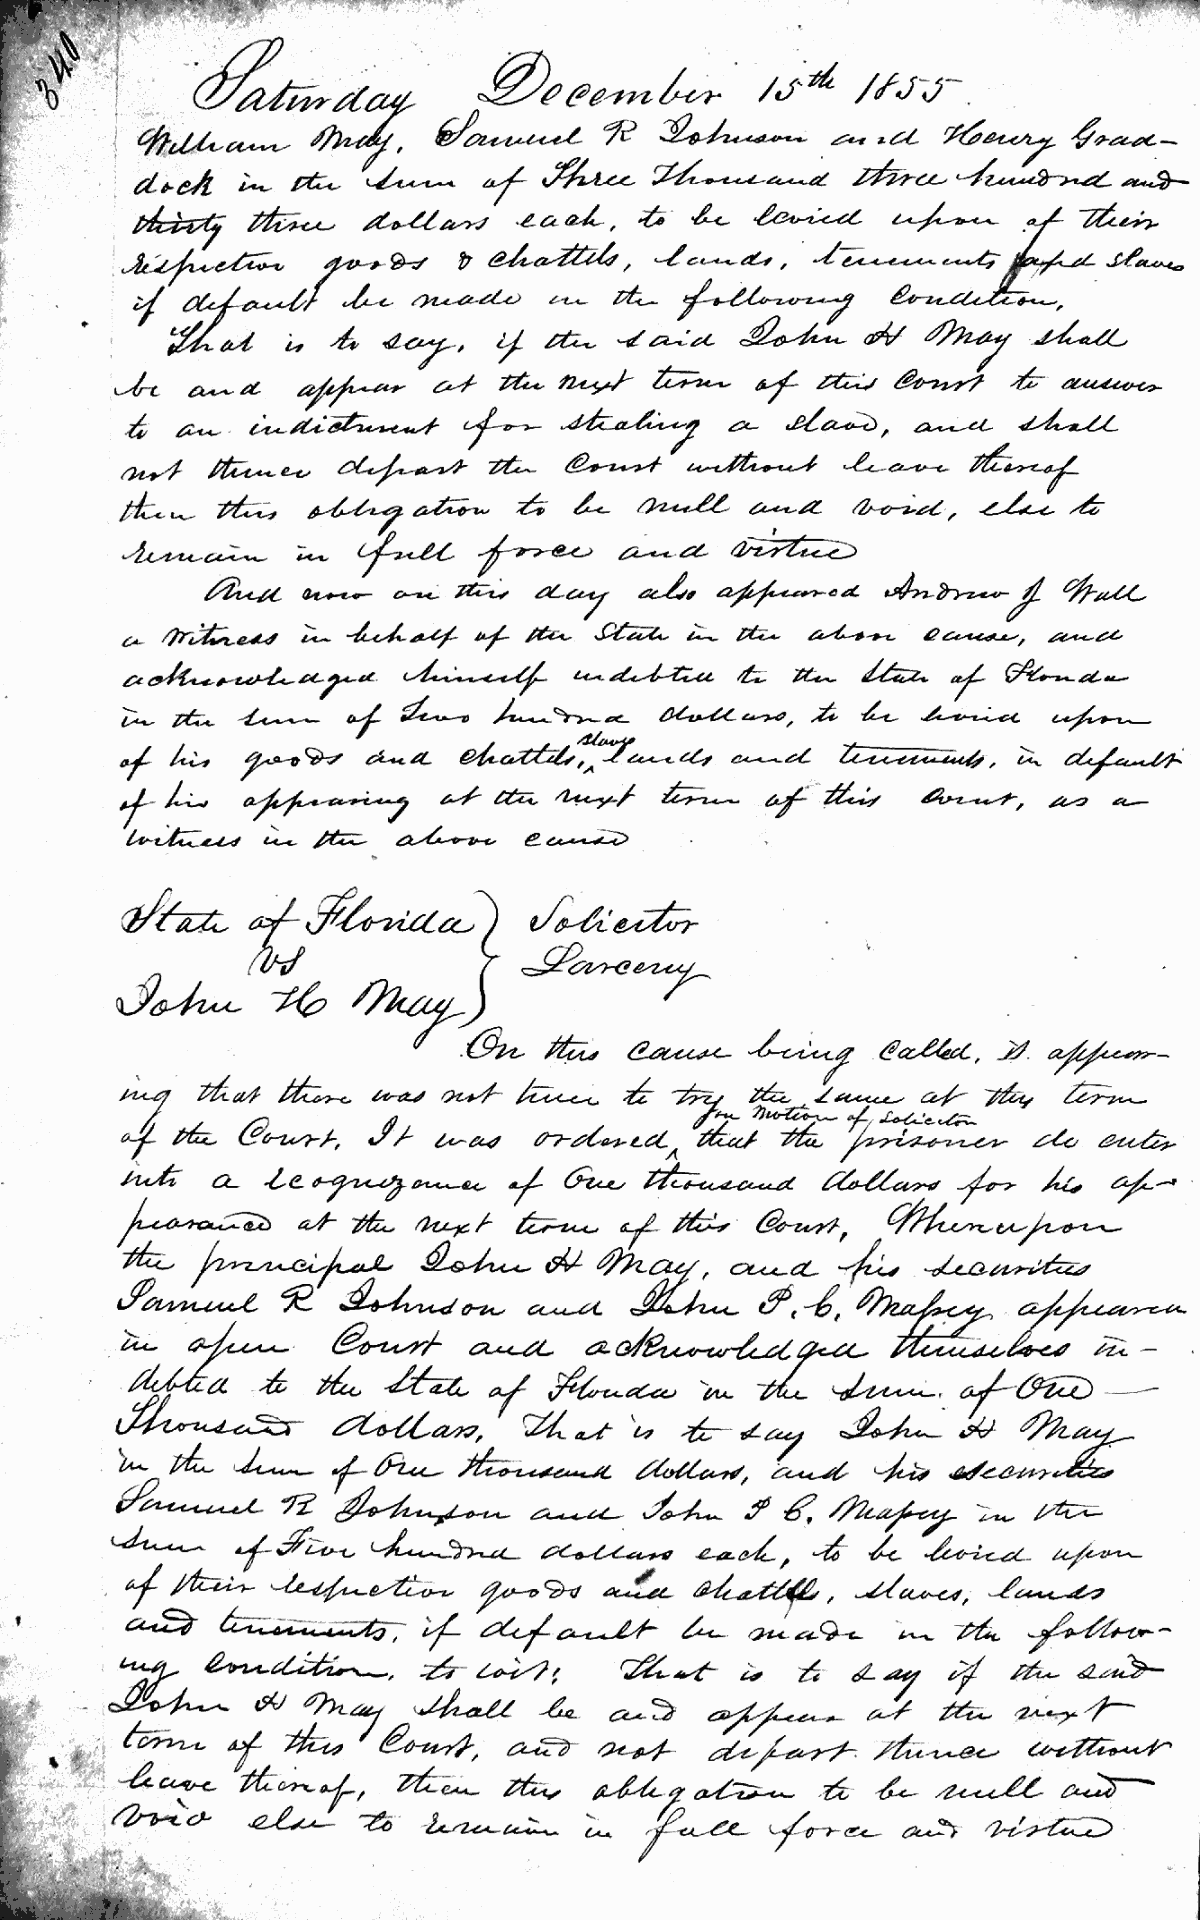 340
Saturday December 15th 1855
William May, Samuel R Johnson and Henry Grad-
dock in the sum of Three Thousand three hundred and
thirty three dollars each, to be levied upon of their
respective goods & chattels, lands, tenements and slaves
if default be made in the following condition,
That is to say, if the said John H May shall
be and appear at the next term of this Court to answer
to an indictment for stealing a slave, and shall
not thence depart the Court without leave thereof
then this obligation to be null and void, else to
remain in full force and virtue
And now on this day also appeared Andrew J Wall
a witness in behalf of the State in the above cause, and
acknowledged himself indebted to the State of Florida
in the sum of Two hundred dollars, to be levied upon
of his goods and chattels, slaves lands and tenements, in default
of his appearing at the next term of this Court, as a
witness in the above cause
State of Florida } Solicitor
vs
Larceny
John H May
On this cause being called, it appear-
ing that there was not time to try the same at this term
of the Court, It was ordered, on motion of Solicitor that the prisoner do enter
into a recognizance of One thousand dollars for his ap-
pearance at the next term of this Court, Whereupon
the principal John H May, and his securities
Samuel R Johnson and John P. C. Massey appeared
in open Court and acknowledged themselves in-
debted to the State of Florida in the sum of One
Thousand dollars, That is to say John H May
in the sum of One thousand dollars, and his securities
Samuel R Johnson and John P C. Massey in the
sum of Five hundred dollars each, to be levied upon
of their respective goods and chattels, slaves, lands
and tenements, if default be made in the follow-
ing condition, to wit: That is to say if the said
John H May shall be and appear at the next
term of this Court, and not depart thence without
leave thereof, then this obligation to be null and
void else to remain in full force and virtue